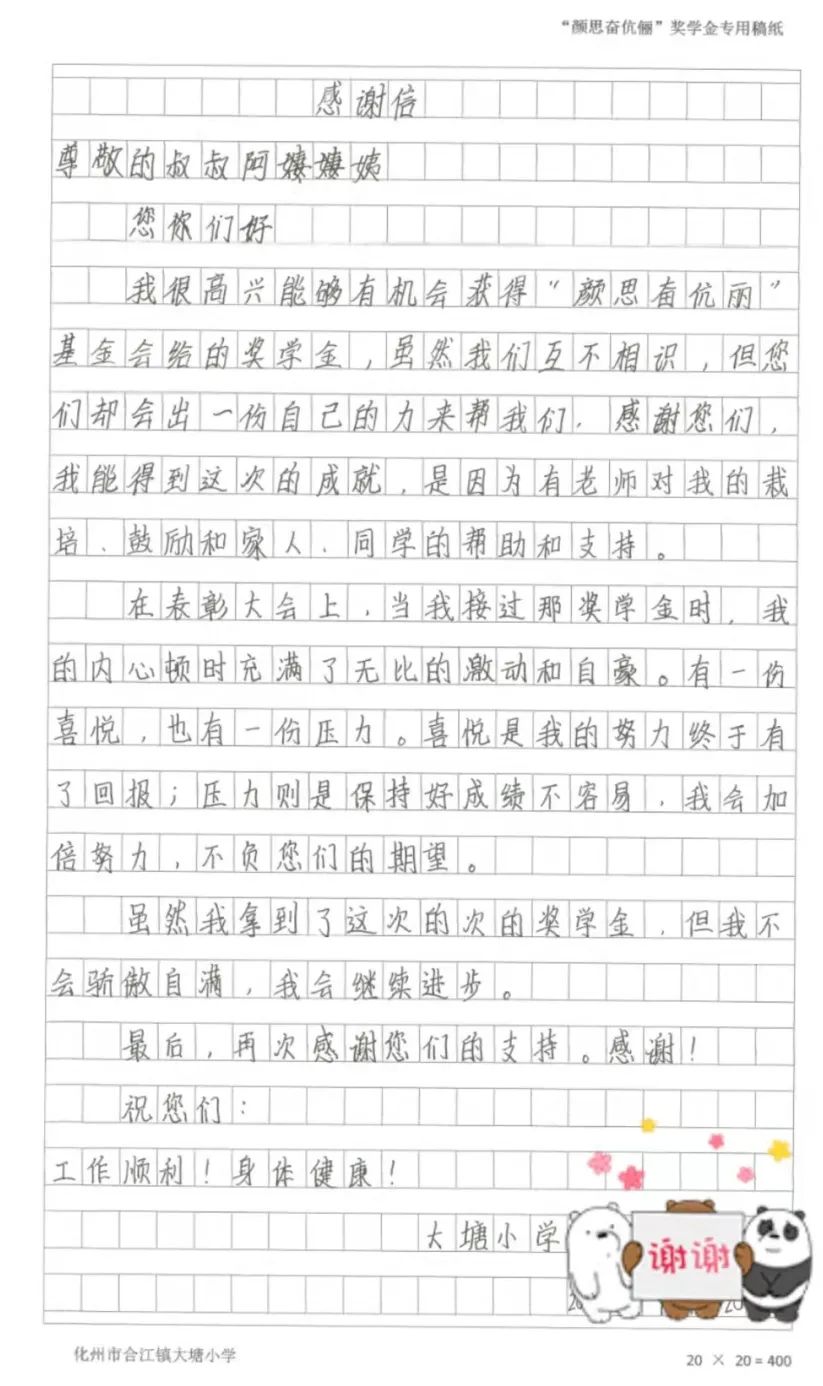 “颜思奋伉俪”奖学金专用稿纸
感谢信
尊敬的叔叔阿姨
您你们好
我很高兴能够有机会获得“颜思奋伉丽”
基金会给的奖学金，虽然我们互不相识，但您
们却会出一份自己的力来帮我们，感谢您们，
我能得到这次的成就，是因为有老师对我的栽
培、鼓励和家人、同学的帮助和支持。
在表彰大会上，当我接过那奖学金时，我
的内心顿时充满了无比的激动和自豪。有一份
喜悦，也有一份压力。喜悦是我的努力终于有
了回报；压力则是保持好成绩不容易，我会加
倍努力，不负您们的期望。
虽然我拿到了这次的次的奖学金，但我不
会骄傲自满，我会继续进步。
最后，再次感谢您们的支持。感谢！
祝您们：
工作顺利！身体健康！
大塘小学
谢谢
化州市合江镇大塘小学
20 × 20=400